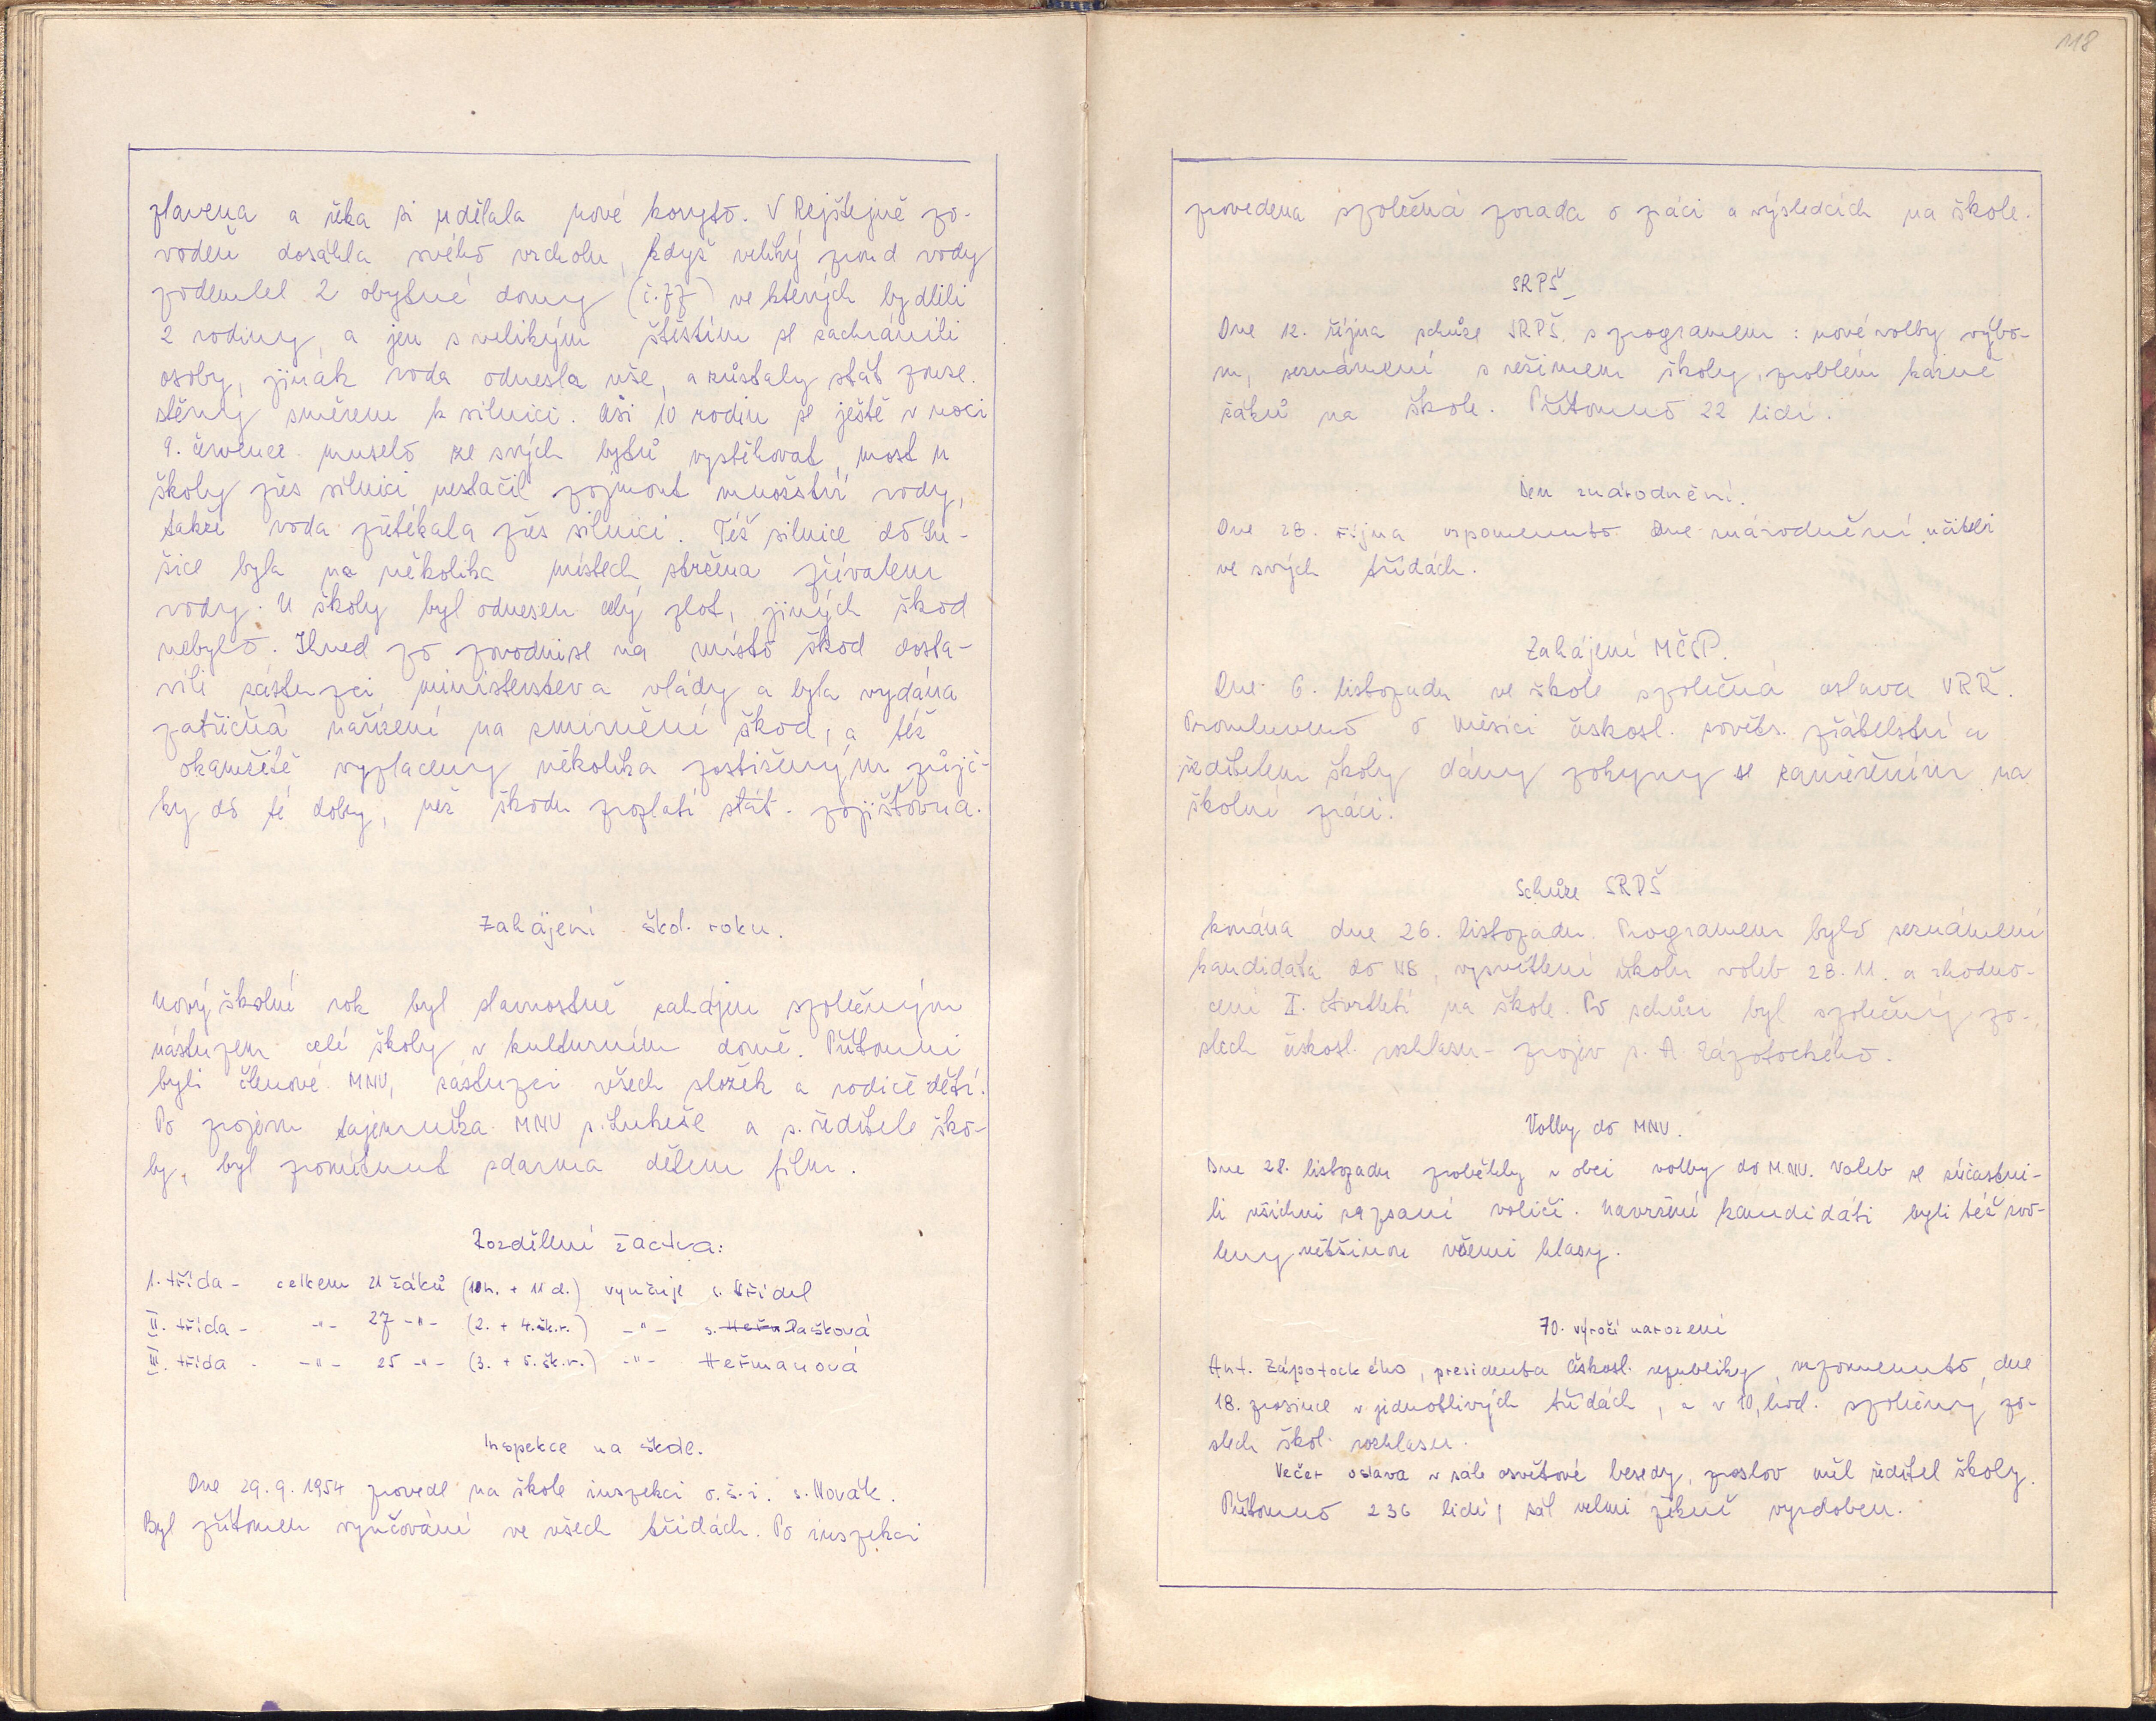 plavena a řeka si udělala nové koryto. V Rejštejně po-
vodeň dosáhla svého vrcholu, když veliký proud vody
podemlel 2 obytné domy (č. 77) ve kterých bydlili
2 rodiny, a jen s velikým štěstím se zachránili
osoby, jinak voda odnesla vše, a zůstaly stát pouze
stěny směrem k silnici. Asi 10 rodin se ještě v noci
9. července muselo ze svých bytů vystěhovat, most u
školy přes silnici nestačil pojmout množství vody,
takže voda přetékala přes silnici. Též silnice do Su-
šice byla na několika místech stržena přívalem
vody. U školy byl odnesen celý plot, jiných škod
nebylo. Ihned po povodni se na místo škod dosta-
vili zástupci ministerstev a vlády a byla vydána
patřičná nařízení na zmírnění škod, a též
okamžitě vyplaceny několika postiženým půjč-
ky do té doby, než škodu proplatí stát. pojišťovna.
Zahájení škol. roku.
Nový školní rok byl slavnostně zahájen společným
nástupem celé školy v kulturním domě. Přítomni
byli členové MNV, zástupci všech složek a rodiče dětí.
Po projevu tajemníka MNV s. Lukeše a s. ředitele ško-
ly, byl promítnut zdarma dětem film.
Rozdělení žactva:
1. třída - celkem 21 žáků (10 h. + 11 d.) vyučuje s. Střídl
II. třída - -"- 27 -"- (2. + 4. šk. r.) -"- s. Heřm Pašková
III. třída - -"- 25 -"- (3. + 5. šk. r.) -"- Heřmanová
Inspekce na škole.
Dne 29. 9. 1954 provedl na škole inspekci o. š. i. s. Novák.
Byl přítomen vyučování ve všech třídách. Po inspekci
118
provedena společná porada o práci a výsledcích na škole.
SRPŠ
Dne 12. října schůze SRPŠ s programem: nové volby výbo-
ru, seznámení s režimem školy, problém kázně
žáků na škole. Přítomno 22 lidí.
Den znárodnění.
Dne 28. října vzpomenuto Dne znárodnění učiteli
ve svých třídách.
Zahájení MČSP.
Dne 6. listopadu ve škole společná oslava VŘR.
Promluveno o Měsíci českosl. sověts. přátelství a
ředitelem školy dány pokyny se zaměřením na
školní práci.
Schůze SRPŠ
konána dne 26. listopadu. Programem bylo seznámení
kandidáta do NS, vysvětlení úkolu voleb 28. 11. a zhodno-
cení I. čtvrtletí na škole. Po schůzi byl společný po-
slech českosl. rozhlasu - projev s. A. Zápotockého.
Volby do MNV.
Dne 28. listopadu proběhly v obci volby do MNV. Voleb se súčastni-
li všichni zapsaní voliči. Navržení kandidáti byli též zvo-
leny většinou všemi hlasy.
70. výročí narození
Ant. Zápotockého, presidenta českosl. republiky vzpomenuto dne
18. prosince v jednotlivých třídách, a v 10, hod. společný po-
slech škol. rozhlasu.
Večer oslava v sále osvětové besedy, proslov měl ředitel školy.
Přítomno 236 lidí, sál velmi pěkně vyzdoben.